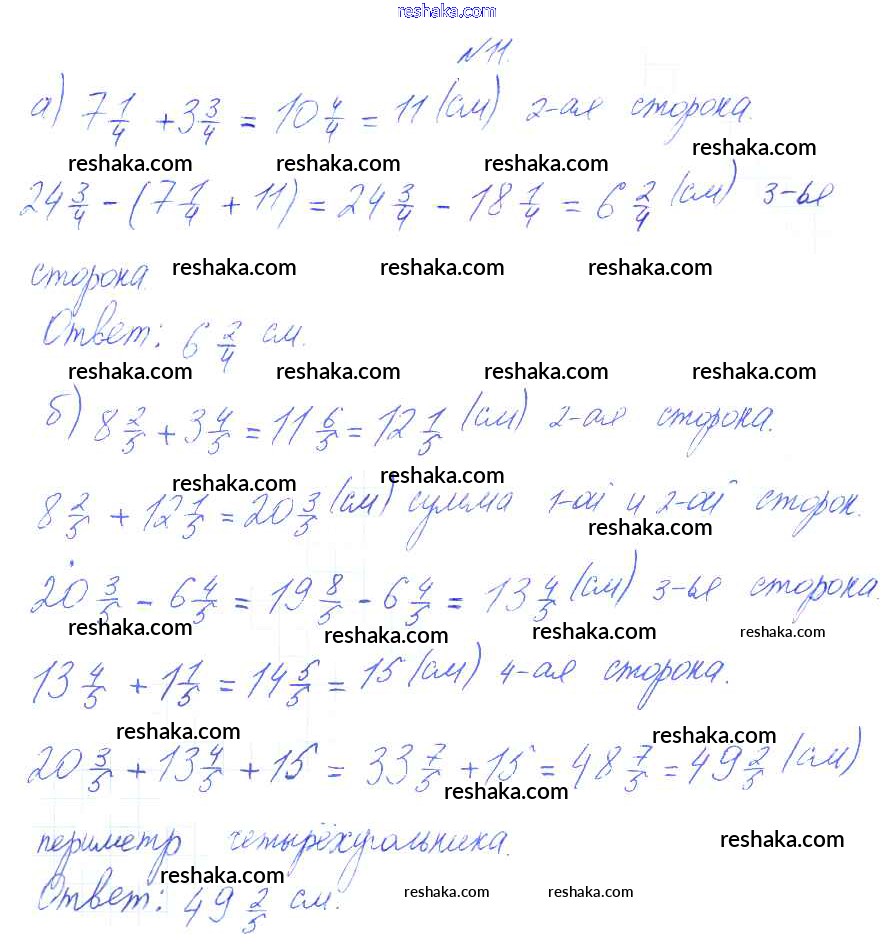 reshaka.com
№11.
а) 7 1/4 + 3 3/4 = 10 4/4 = 11 (см) 2-ая сторона.
reshaka.com
reshaka.com reshaka.com reshaka.com
24 3/4 - (7 1/4 + 11) = 24 3/4 - 18 1/4 = 6 2/4 (см) 3-ья
сторона. reshaka.com reshaka.com reshaka.com
Ответ: 6 2/4 см.
reshaka.com reshaka.com reshaka.com reshaka.com
б) 8 2/5 + 3 4/5 = 11 6/5 = 12 1/5 (см) 2-ая сторона.
reshaka.com reshaka.com
8 2/5 + 12 1/5 = 20 3/5 (см) сумма 1-ой и 2-ой сторон.
reshaka.com
20 3/5 - 6 4/5 = 19 8/5 - 6 4/5 = 13 4/5 (см) 3-ья сторона.
reshaka.com reshaka.com reshaka.com reshaka.com
13 4/5 + 1 1/5 = 14 5/5 = 15 (см) 4-ая сторона.
reshaka.com reshaka.com
20 3/5 + 13 4/5 + 15 = 33 7/5 + 15 = 48 7/5 = 49 2/5 (см)
reshaka.com
периметр четырёхугольника.
reshaka.com
reshaka.com
Ответ: 49 2/5 см.
reshaka.com reshaka.com